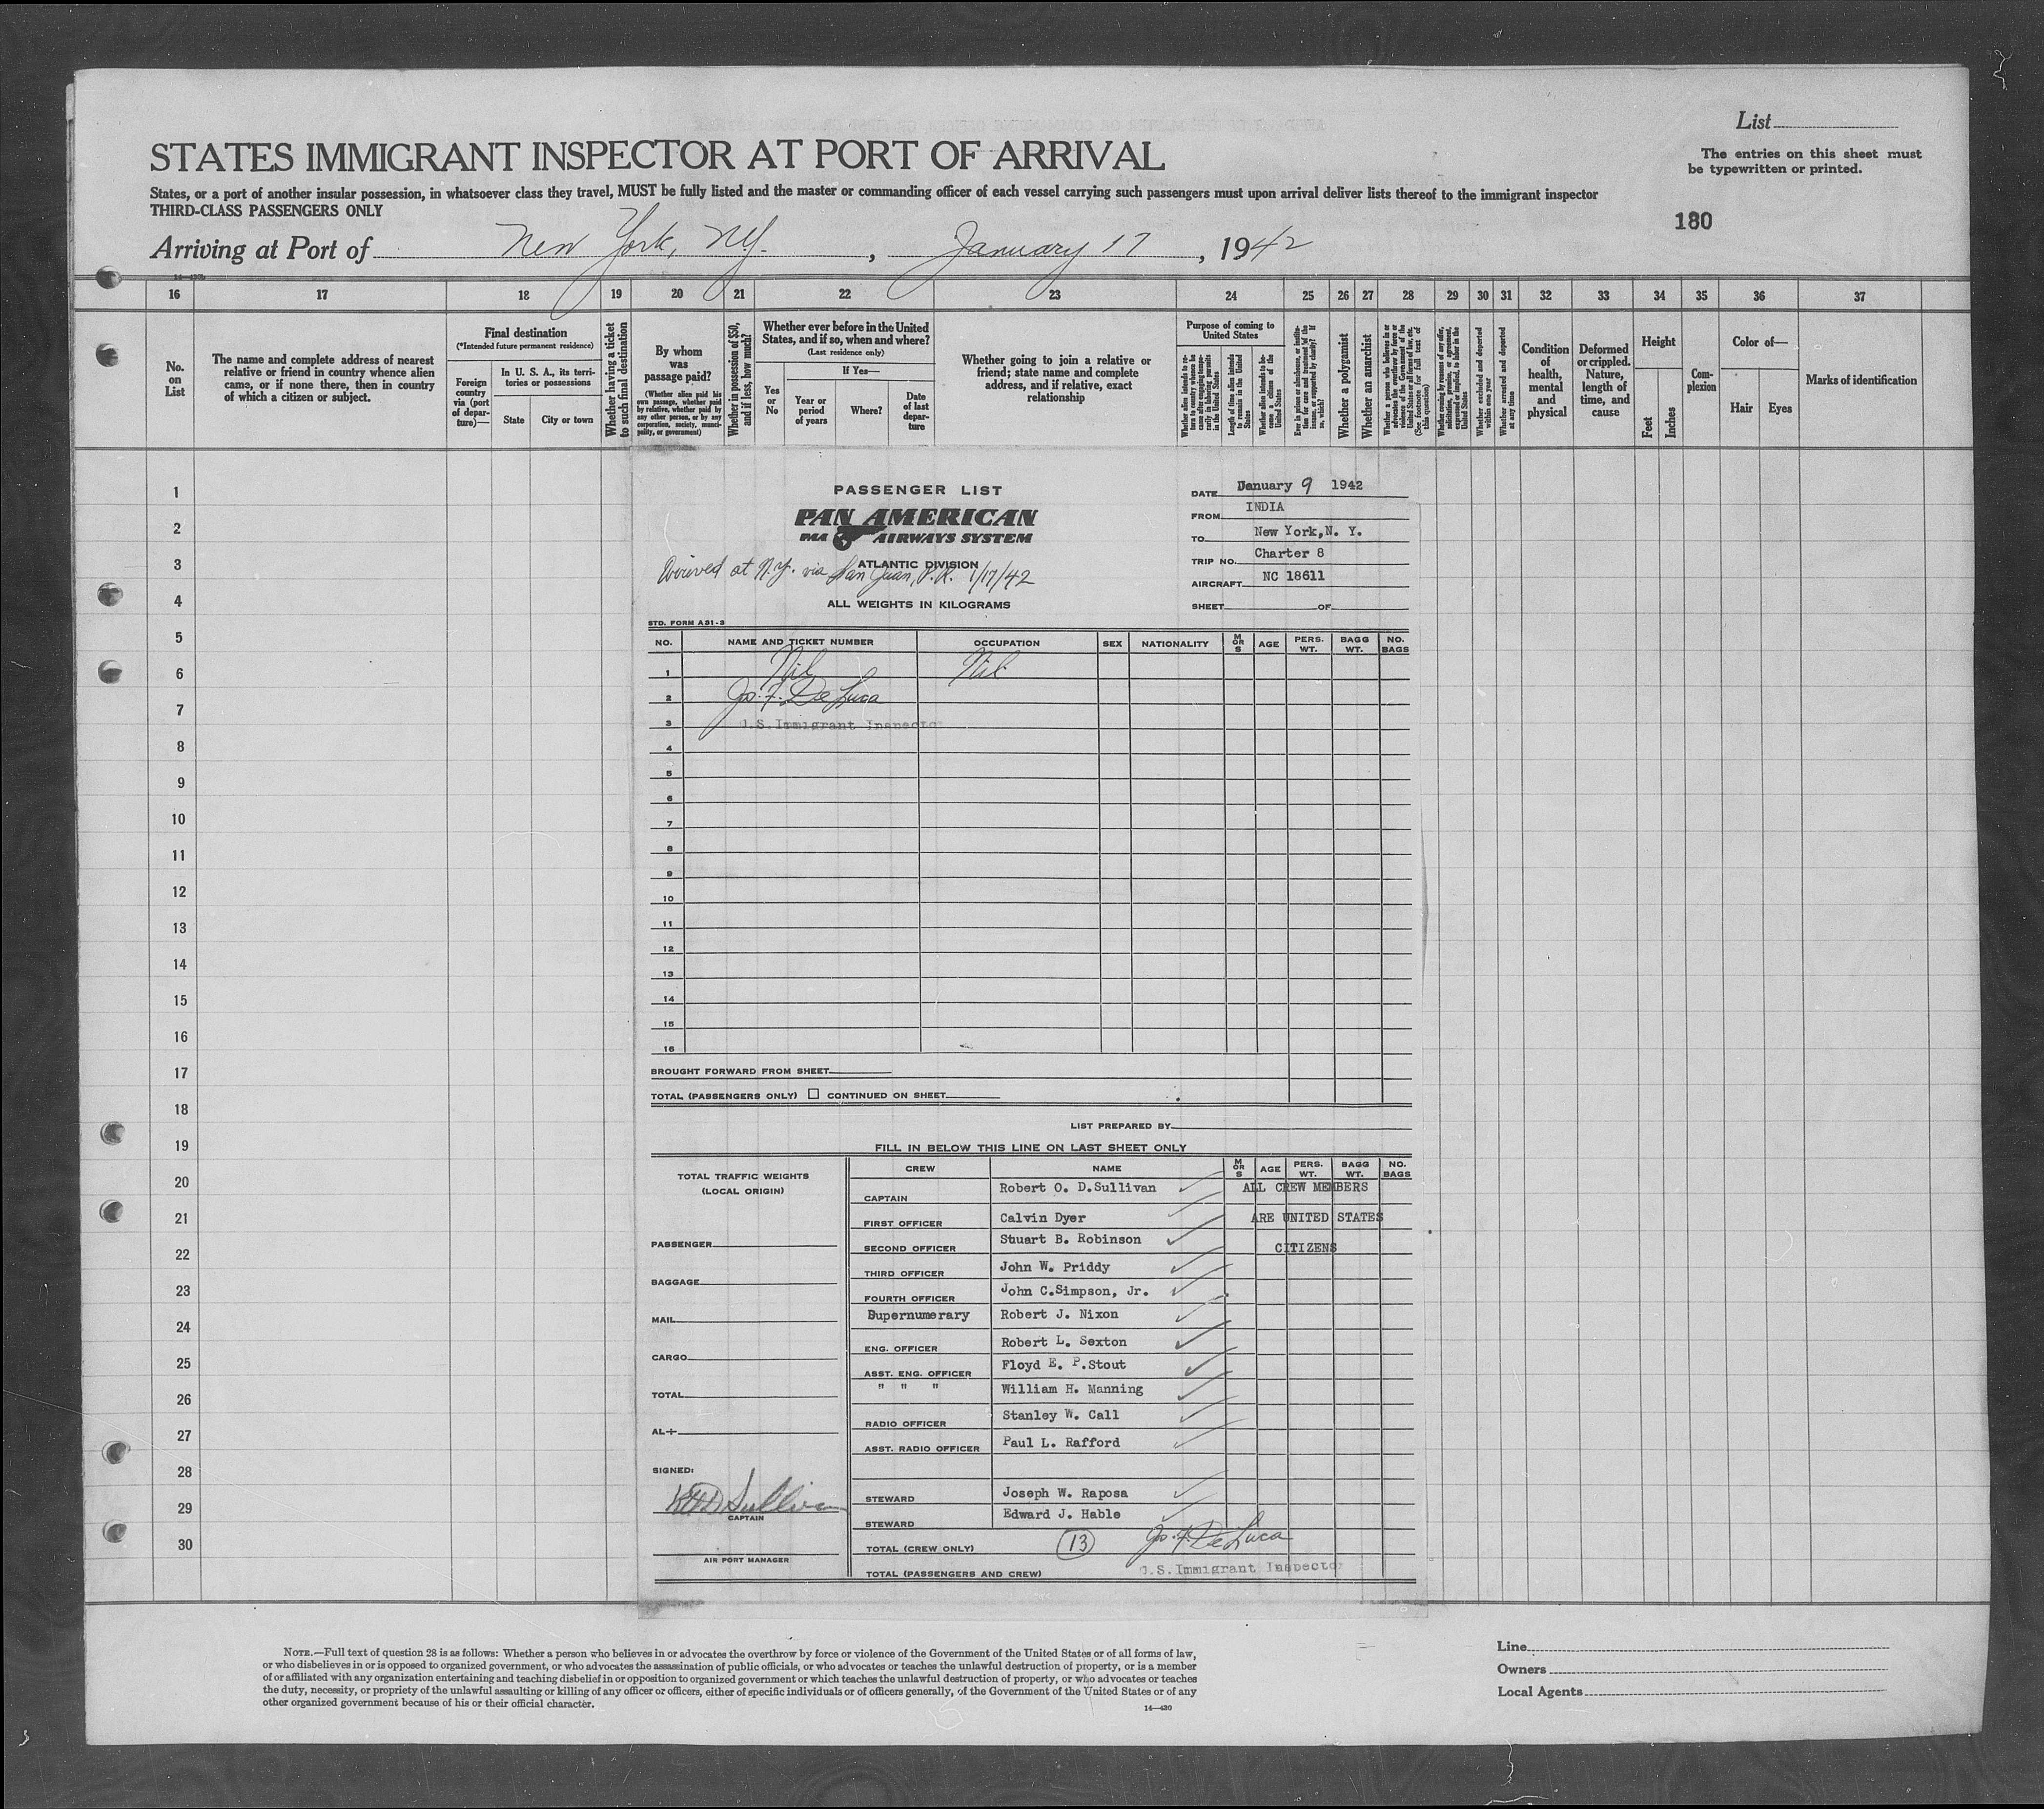 List
The entries on this sheet must
be typewritten or printed.
STATES IMMIGRANT INSPECTOR AT PORT OF ARRIVAL
States, or a port of another insular possession, in whatsoever class they travel, MUST be fully listed and the master or commanding officer of each vessel carrying such passengers must upon arrival deliver lists thereof to the immigrant inspector
THIRD-CLASS PASSENGERS ONLY
180
Arriving at Port of New York, N.Y. , January 17 , 1942
16 17 18 19 20 21 22 23 24 25 26 27 28 29 30 31 32 33 34 35 36 37
No. on List
The name and complete address of nearest relative or friend in country whence alien came, or if none there, then in country of which a citizen or subject.
Final destination
(*Intended future permanent residence)
Foreign country via (port of departure)—
In U. S. A., its territories or possessions
State
City or town
Whether having a ticket to such final destination
By whom was passage paid?
(Whether alien paid his own passage, whether paid by relative, whether paid by any other person, or by any corporation, society, municipality, or government)
Whether in possession of $50, and if less, how much?
Whether ever before in the United States, and if so, when and where?
(Last residence only)
Yes or No
If Yes—
Year or period of years
Where?
Date of last departure
Whether going to join a relative or friend; state name and complete address, and if relative, exact relationship
Purpose of coming to United States
Length of time alien intends to remain in the United States
Whether alien intends to become a citizen of the United States
Whether a polygamist
Whether an anarchist
Whether excluded and deported within one year
Whether arrested and deported at any time
Condition of health, mental and physical
Deformed or crippled. Nature, length of time, and cause
Height
Feet
Inches
Complexion
Color of—
Hair
Eyes
Marks of identification
1
2
3
4
5
6
7
8
9
10
11
12
13
14
15
16
17
18
19
20
21
22
23
24
25
26
27
28
29
30
PASSENGER LIST
PAN AMERICAN
PAA AIRWAYS SYSTEM
ATLANTIC DIVISION
Arrived at N.Y. via San Juan, P.R. 1/17/42
ALL WEIGHTS IN KILOGRAMS
DATE January 9 1942
FROM INDIA
TO New York,N. Y.
TRIP NO. Charter 8
AIRCRAFT NC 18611
SHEET OF
STD. FORM A31-2
NO. NAME AND TICKET NUMBER OCCUPATION SEX NATIONALITY M OR S AGE PERS. WT. BAGG WT. NO. BAGS
1 Nil Nil
2 Jo. F. De Luca
3 U.S. Immigrant Inspector
4
5
6
7
8
9
10
11
12
13
14
15
16
BROUGHT FORWARD FROM SHEET
TOTAL (PASSENGERS ONLY) CONTINUED ON SHEET
LIST PREPARED BY
FILL IN BELOW THIS LINE ON LAST SHEET ONLY
TOTAL TRAFFIC WEIGHTS
(LOCAL ORIGIN)
PASSENGER
BAGGAGE
MAIL
CARGO
TOTAL
AL+
SIGNED:
CAPTAIN
AIR PORT MANAGER
CREW NAME M OR S AGE PERS. WT. BAGG WT. NO. BAGS
CAPTAIN Robert O. D.Sullivan ALL CREW MEMBERS
FIRST OFFICER Calvin Dyer ARE UNITED STATES
SECOND OFFICER Stuart B. Robinson CITIZENS
THIRD OFFICER John W. Priddy
FOURTH OFFICER John C.Simpson, Jr.
Supernumerary Robert J. Nixon
ENG. OFFICER Robert L. Sexton
ASST. ENG. OFFICER Floyd E. P.Stout
" " " William H. Manning
RADIO OFFICER Stanley W. Call
ASST. RADIO OFFICER Paul L. Rafford
STEWARD Joseph W. Raposa
STEWARD Edward J. Hable
TOTAL (CREW ONLY) 13 Jo. F. De Luca
TOTAL (PASSENGERS AND CREW) U.S. Immigrant Inspector
NOTE.—Full text of question 28 is as follows: Whether a person who believes in or advocates the overthrow by force or violence of the Government of the United States or of all forms of law,
or who disbelieves in or is opposed to organized government, or who advocates the assassination of public officials, or who advocates or teaches the unlawful destruction of property, or is a member
of or affiliated with any organization entertaining and teaching disbelief in or opposition to organized government or which teaches the unlawful destruction of property, or who advocates or teaches
the duty, necessity, or propriety of the unlawful assaulting or killing of any officer or officers, either of specific individuals or of officers generally, of the Government of the United States or of any
other organized government because of his or their official character.
14—430
Line
Owners
Local Agents